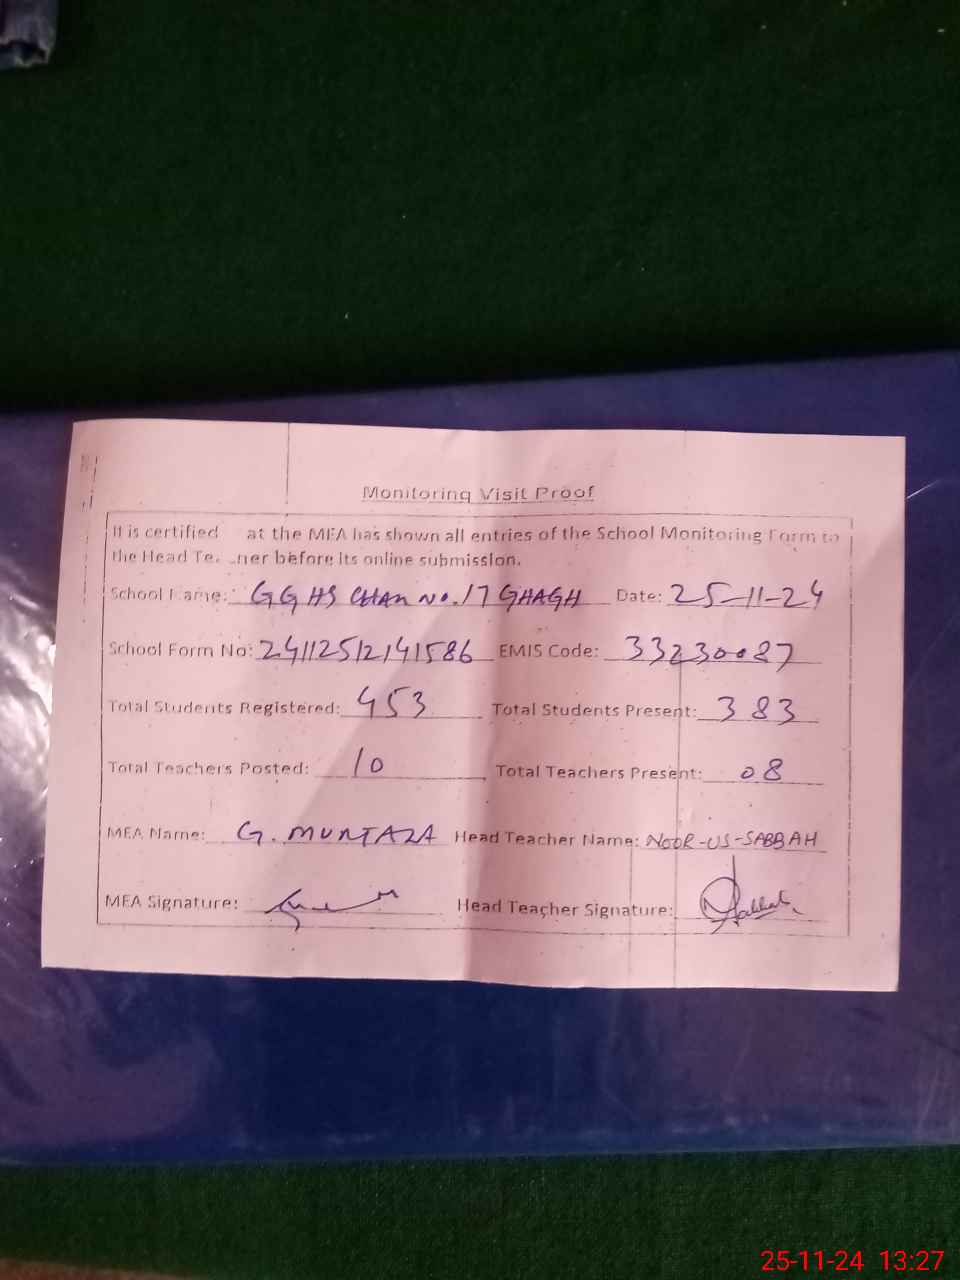 Monitoring Visit Proof
It is certified at the MEA has shown all entries of the School Monitoring Form to
the Head Te. .ner before its online submission.
School Name: GGHS CHAK NO. 17 GHAGH Date: 25-11-24
School Form No: 24112512141586 EMIS Code: 33230087
Total Students Registered: 453 Total Students Present: 383
Total Teachers Posted: 10 Total Teachers Present: 08
MEA Name: G. MURTAZA Head Teacher Name: NOOR-US-SABBAH
MEA Signature: Head Teacher Signature:
25-11-24 13:27